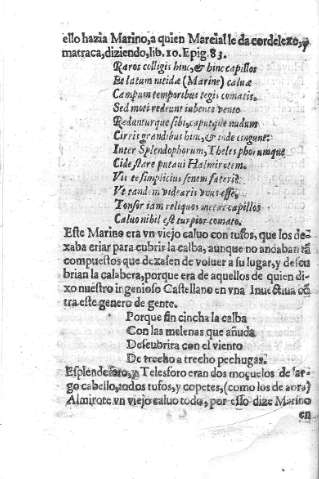 ello hazia Marino, a quien Marcial le da cordelexo, y
matraca, diziendo, lib. 10. Epig. 83.
Raros colligis hinc, & hinc capillos
Et latum nitidæ (Marine) caluæ
Campum temporibus tegis comatis.
Sed moti redeunt iubente vento
Reddunturque sibi, caputque nudum
Cirris grandibus hinc, & inde cingunt:
Inter Splendophorum, Thelesphorumque
Cide stare putaui Halmirotem.
Vis te simplicius senem fateri?
Vt tandem videaris vnus esse,
Tonsor iam reliquos metat capillos
Caluo nihil est turpior comato.
Este Marino era vn viejo caluo con tufos, que los de-
xaba criar para cubrir la calba, aunque no andaban tã
compuestos que dexasen de voluer a su lugar, y descu
brian la calabera, porque era de aquellos de quien di-
xo nuestro ingenioso Castellano en vna Inuectiua cõ
tra este genero de gente.
Porque sin cincha la calba
Con las melenas que añuda
Descubrira con el viento
De trecho a trecho pechugas.
Esplendeforo, y Telesforo eran dos moçuelos de lar-
go cabello, todos tufos, y copetes, (como los de aora)
Almirote vn viejo caluo todo, por esso dize Marino
en